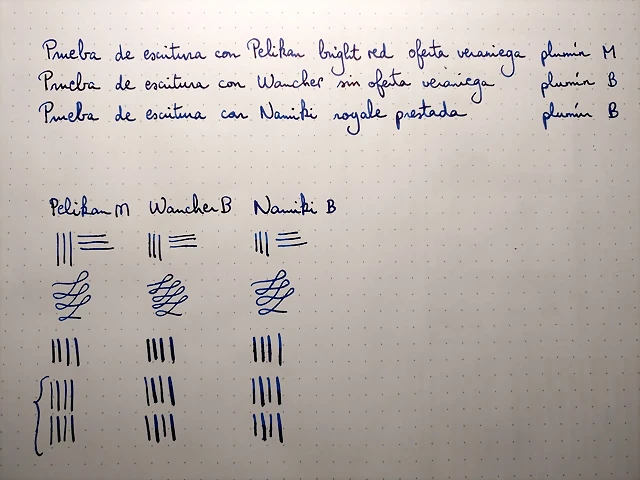 Prueba de escritura con Pelikan bright red oferta veraniega plumín M
Prueba de escritura con Wancher sin oferta veraniega plumín B
Prueba de escritura con Namiki royale prestada plumín B
Pelikan M Wancher B Namiki B